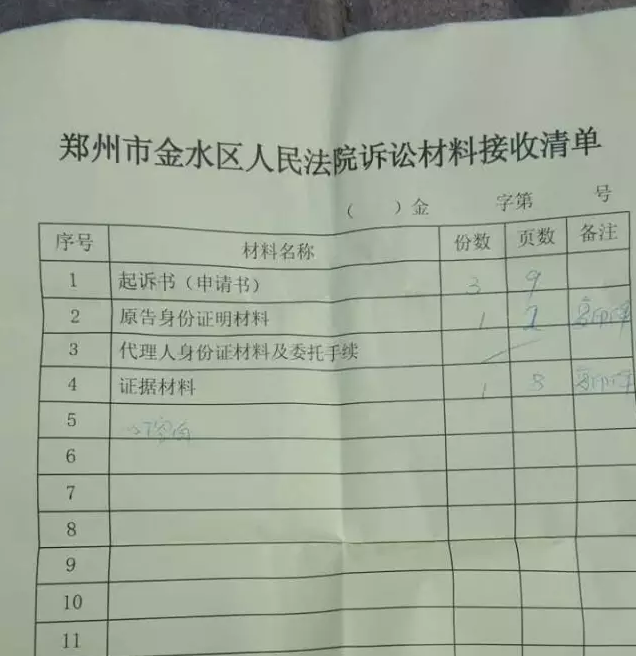 郑州市金水区人民法院诉讼材料接收清单
（ ）金 字第 号
序号 材料名称 份数 页数 备注
1 起诉书（申请书） 3 9
2 原告身份证明材料 1 1 复印件
3 代理人身份证材料及委托手续
4 证据材料 1 8 复印件
5
6
7
8
9
10
11